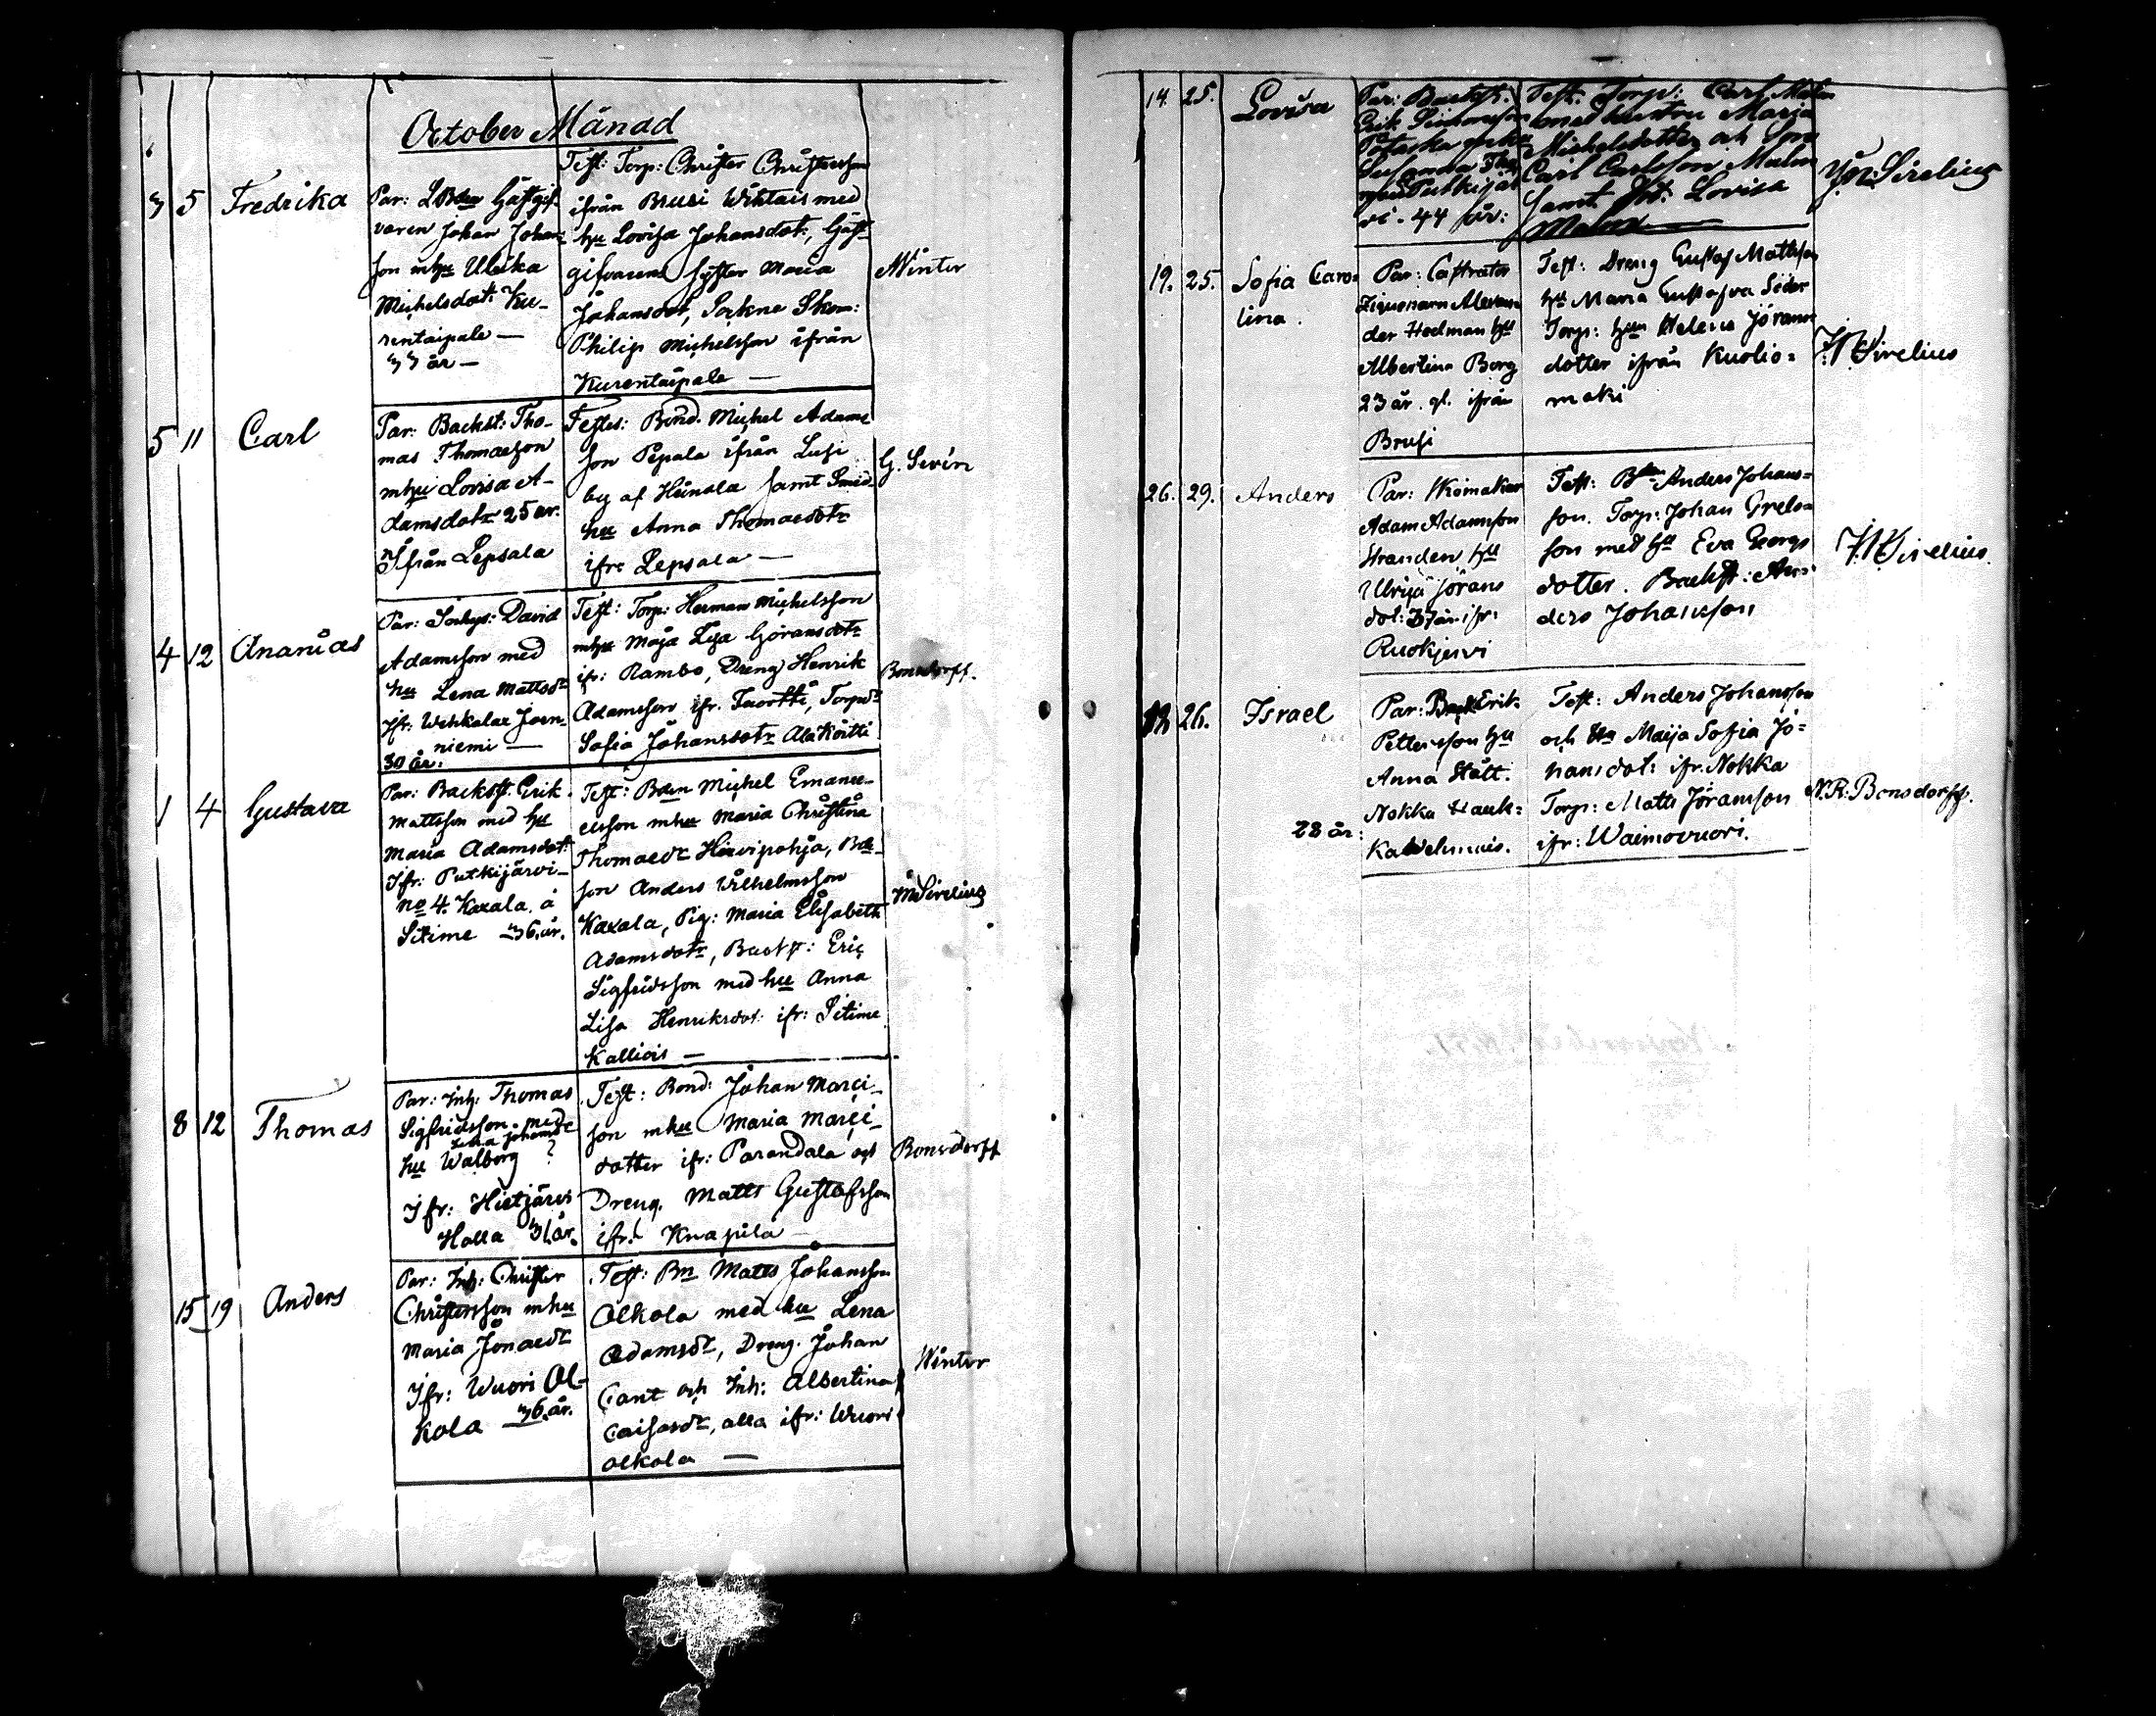 October Månad
3 5 Fredrika
Par: LBden Gästgif-
varen Johan Johan-
son mhu Ulrika
Michelsdotr Ku-
rentaipale —
33 år —
Test: Torp: Christer Christersson
ifrån Brusi Wihtais med
hu Lovisa Johansdotr, Gäst-
gifvarens syster Maria
Johansdotr, Sockne Skom:
Philip Michelsson ifrån
Kurentaipale —
Winter
5 11 Carl
Par: Backst: Tho-
mas Thomasson
mhu Lovisa A-
damsdotr 25 år.
Ifrån Lepsala
Testes: Bond. Michel Adams
son Pepala ifrån Lusi
by af Heinola samt Smed-
hu Anna Thomasdotr
ifr: Lepsala —
G. Sevén
4 12 Ananias
Par: David
Adamsson med
hu Lena Mattsdr
Ifr: Joen-
niemi —
30 år.
Test: Torp: Herman Michelsson
mhu Maja Lisa Göransdotr
ifr: Rambo, Dreng Henrik
Adamsson ifr. Torp:
Sofia Johansdotr Ala Koitti
Bonsdorff.
1 4 Gustava
Par: Backst. Erik
Mattsson med hu
Maria Adamsdotr
Ifr: Putkijärvi-
no 4. Kaxala å
Sitime 36. år.
Test: Bden Michel Emanu-
elsson mhu Maria Christina
Thomasdr Hirvipohja, Bde-
son Anders Wilhelmsson
Kaxala, Pig: Maria Elisabeth
Adamsdotr, Backst: Eric
Sigfridsson med hu Anna
Lisa Henriksdot: ifr: Sitime
Kalliois —
Sirelius
8 12 Thomas
Par: Inh: Thomas
Sigfridsson. med
hu Walborg ?
Ifr: Hietjärvi
Halla 31 år.
Test: Bond: Johan Marci-
son mhu Maria Marci-
dotter ifr: Parandala och
Dreng. Matts Gustafsson
ifr: Knapila
Bonsdorff
15 19 Anders
Par: Inh: Christer
Christersson mhu
Maria Jonaedr
Ifr: Wuori Ol-
kola 36. år.
Test: Bn Matts Johansson
Olkola med hu Lena
Adamsdr, Dreng. Johan
Cant och Inh: Albertina
Caisasdr, alla ifr: Wuori
olkola —
Winter
14. 25. Lovisa
Par: Backst.
Erik Simonsson
Susanna
Putkijär
vi. 44 år:
Test: Torp: Carl Malm
med hustru Maria
Michelsdotter och
Carl Carlsson Malm
samt Lovisa
Malm
Sirelius
19. 25. Sofia Caro-
lina.
Par: Castrator
Zigenaren Alexan
der Hedman hu
Albertina Borg
23 år. gl. ifrån
Brusi
Test: Dreng Gustaf Mattsson
hu Maria Gustafva Söder
Torp: hun Helena Jörans
dotter ifrån Kuolio-
maki
Sirelius
26. 29. Anders
Par: Skomakar
Adam Adamsson
Stranden hu
Ulrija Jörans
dot: 37 år ifr:
Ruokjervi
Test: Bden Anders Johans-
son. Torp: Johan Grels-
son med hu Eva Georgs
dotter. Backst: An-
ders Johansson
Sirelius.
26. Israel
Par: Back Erik
Pettersson hu
Anna Hätt.
Nokka Hauk-
28 år:
Test: Anders Johansson
och Hu Maija Sofia Jo-
hansdot: ifr. Nokka
Torp: Matts Jöransson
ifr: Waimovuori.
N.R: Bonsdorff.